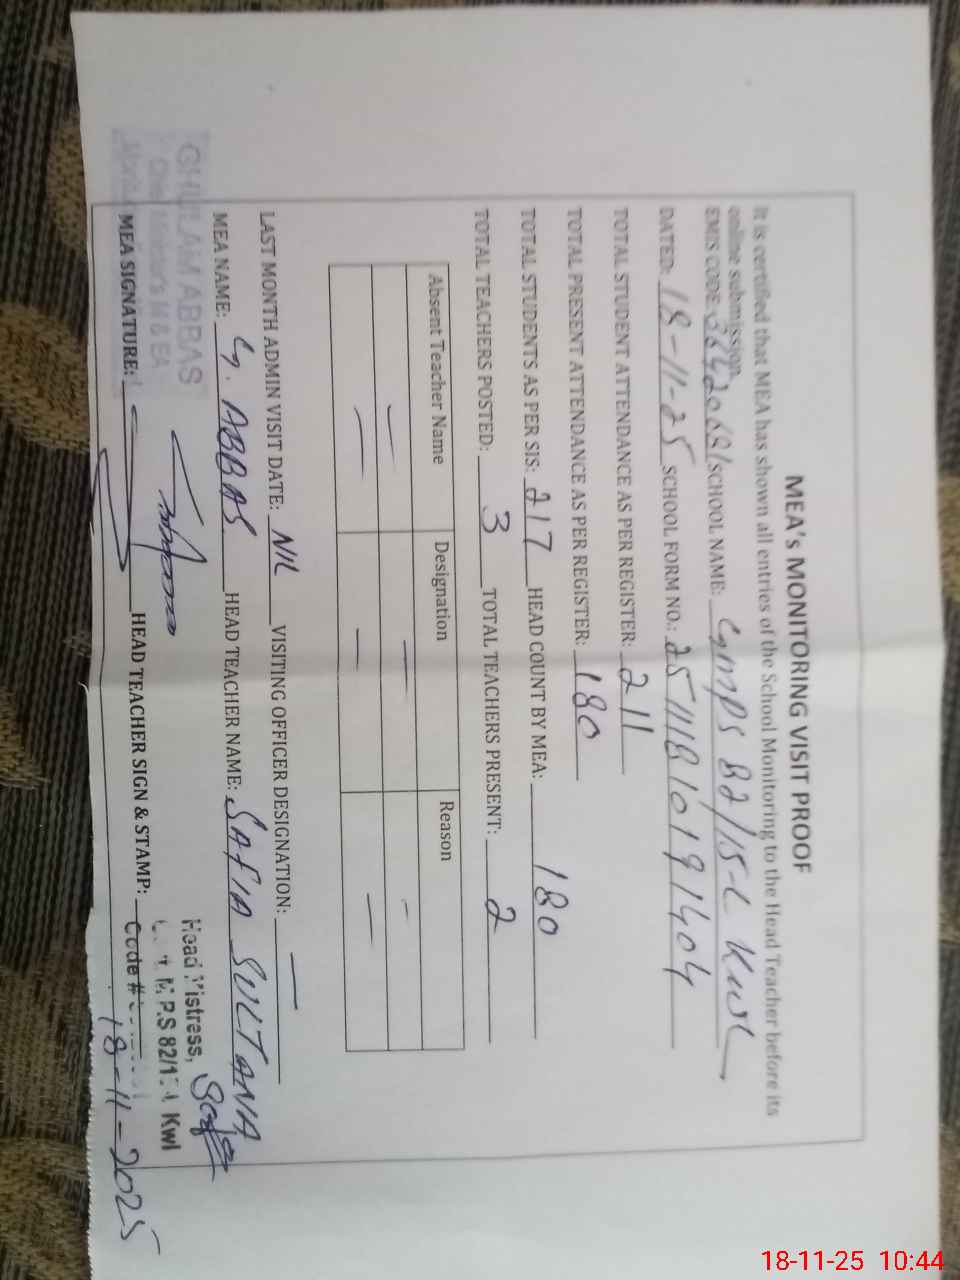 MEA's MONITORING VISIT PROOF
It is certified that MEA has shown all entries of the School Monitoring to the Head Teacher before its
online submission.
EMIS CODE: SCHOOL NAME: GMPS 82/15-L KWL
DATED: 18-11-25 SCHOOL FORM NO.: 25111810191404
TOTAL STUDENT ATTENDANCE AS PER REGISTER: 211
TOTAL PRESENT ATTENDANCE AS PER REGISTER: 180
TOTAL STUDENTS AS PER SIS: 217 HEAD COUNT BY MEA: 180
TOTAL TEACHERS POSTED: 3 TOTAL TEACHERS PRESENT: 2
Absent Teacher Name Designation Reason
— — -
— — —
LAST MONTH ADMIN VISIT DATE: NIL VISITING OFFICER DESIGNATION: —
MEA NAME: G. ABBAS HEAD TEACHER NAME: SAFIA SULTANA
GHULAM ABBAS
Chief Minister's M & EA
Head Mistress,
M.P.S 82/1 Kwl
Code #
MEA SIGNATURE: HEAD TEACHER SIGN & STAMP:
18-11-2025
18-11-25 10:44